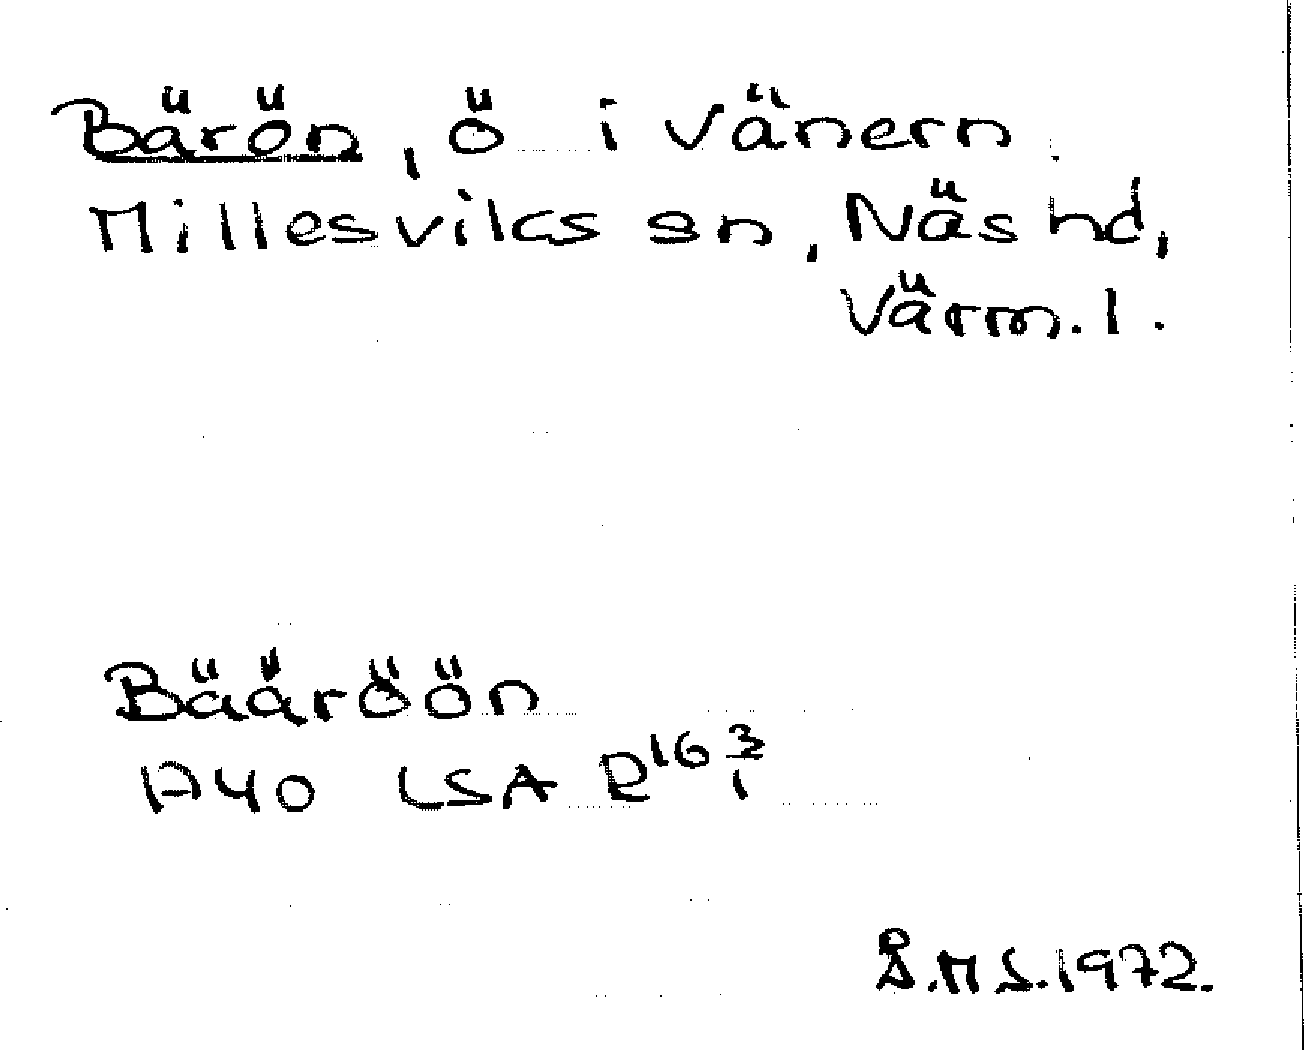 Bärön, ö i Vänern
Millesviks sn, Näs hd,
Värm. l.
Bääröön
1740 LSA R16 3/1
Å.M S. 1972.